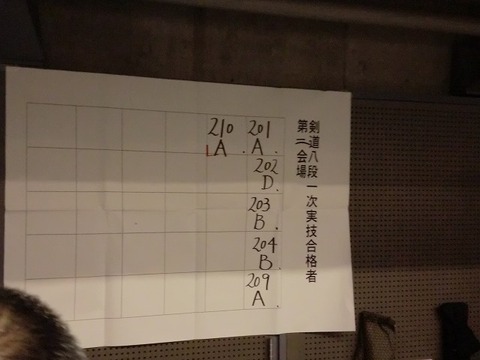 剣道八段一次実技合格者
第二会場
201
A.
202
D.
203
B.
204
B.
209
A.
210
A.